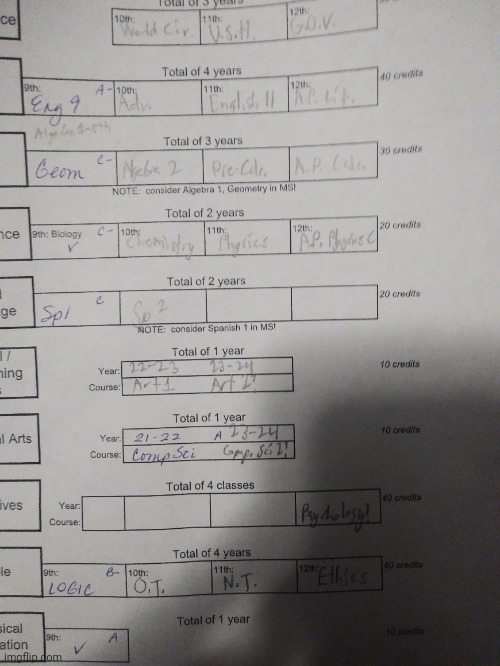 Total of 3 years
ce
10th: 11th: 12th:
World Civ. U.S.H. Gov.
Total of 4 years
40 credits
9th: A- 10th: 11th: 12th:
Eng 9 Adv. English 11 A.P. Lit.
Algebra 1-8th
Total of 3 years
30 credits
Geom C- Algebra 2 Pre-Calc. A.P. Calc.
NOTE: consider Algebra 1, Geometry in MS!
Total of 2 years
20 credits
nce
9th: Biology C- 10th: 11th: 12th:
✓ Chemistry Physics A.P. Physics C
Total of 2 years
20 credits
ge
Sp1 C Sp 2
NOTE: consider Spanish 1 in MS!
Total of 1 year
10 credits
l /
ning
s
Year: 22-23 23-24
Course: Art 1 Art 2?
Total of 1 year
10 credits
l Arts
Year: 21-22 A 23-24
Course: Comp Sci Comp. Sci 2?
Total of 4 classes
40 credits
ives
Year:
Course: Psychology?
Total of 4 years
40 credits
le
9th: B- 10th: 11th: 12th:
LOGIC O.T. N.T. Ethics
Total of 1 year
10 credits
sical
ation
9th: A
✓
imgflip.com